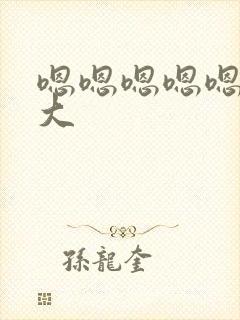 嗯嗯嗯嗯嗯
大
孫龍奎